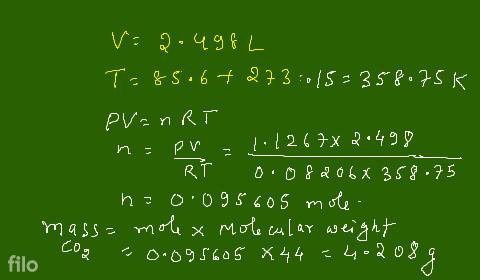 V = 2.498 L
T = 85.6 + 273.15 = 358.75 K
PV = nRT
n = PV/RT = 1.1267 x 2.498 / 0.08206 x 358.75
n = 0.095605 mole.
mass = mole x Molecular weight
CO2 = 0.095605 x 44 = 4.208 g
filo